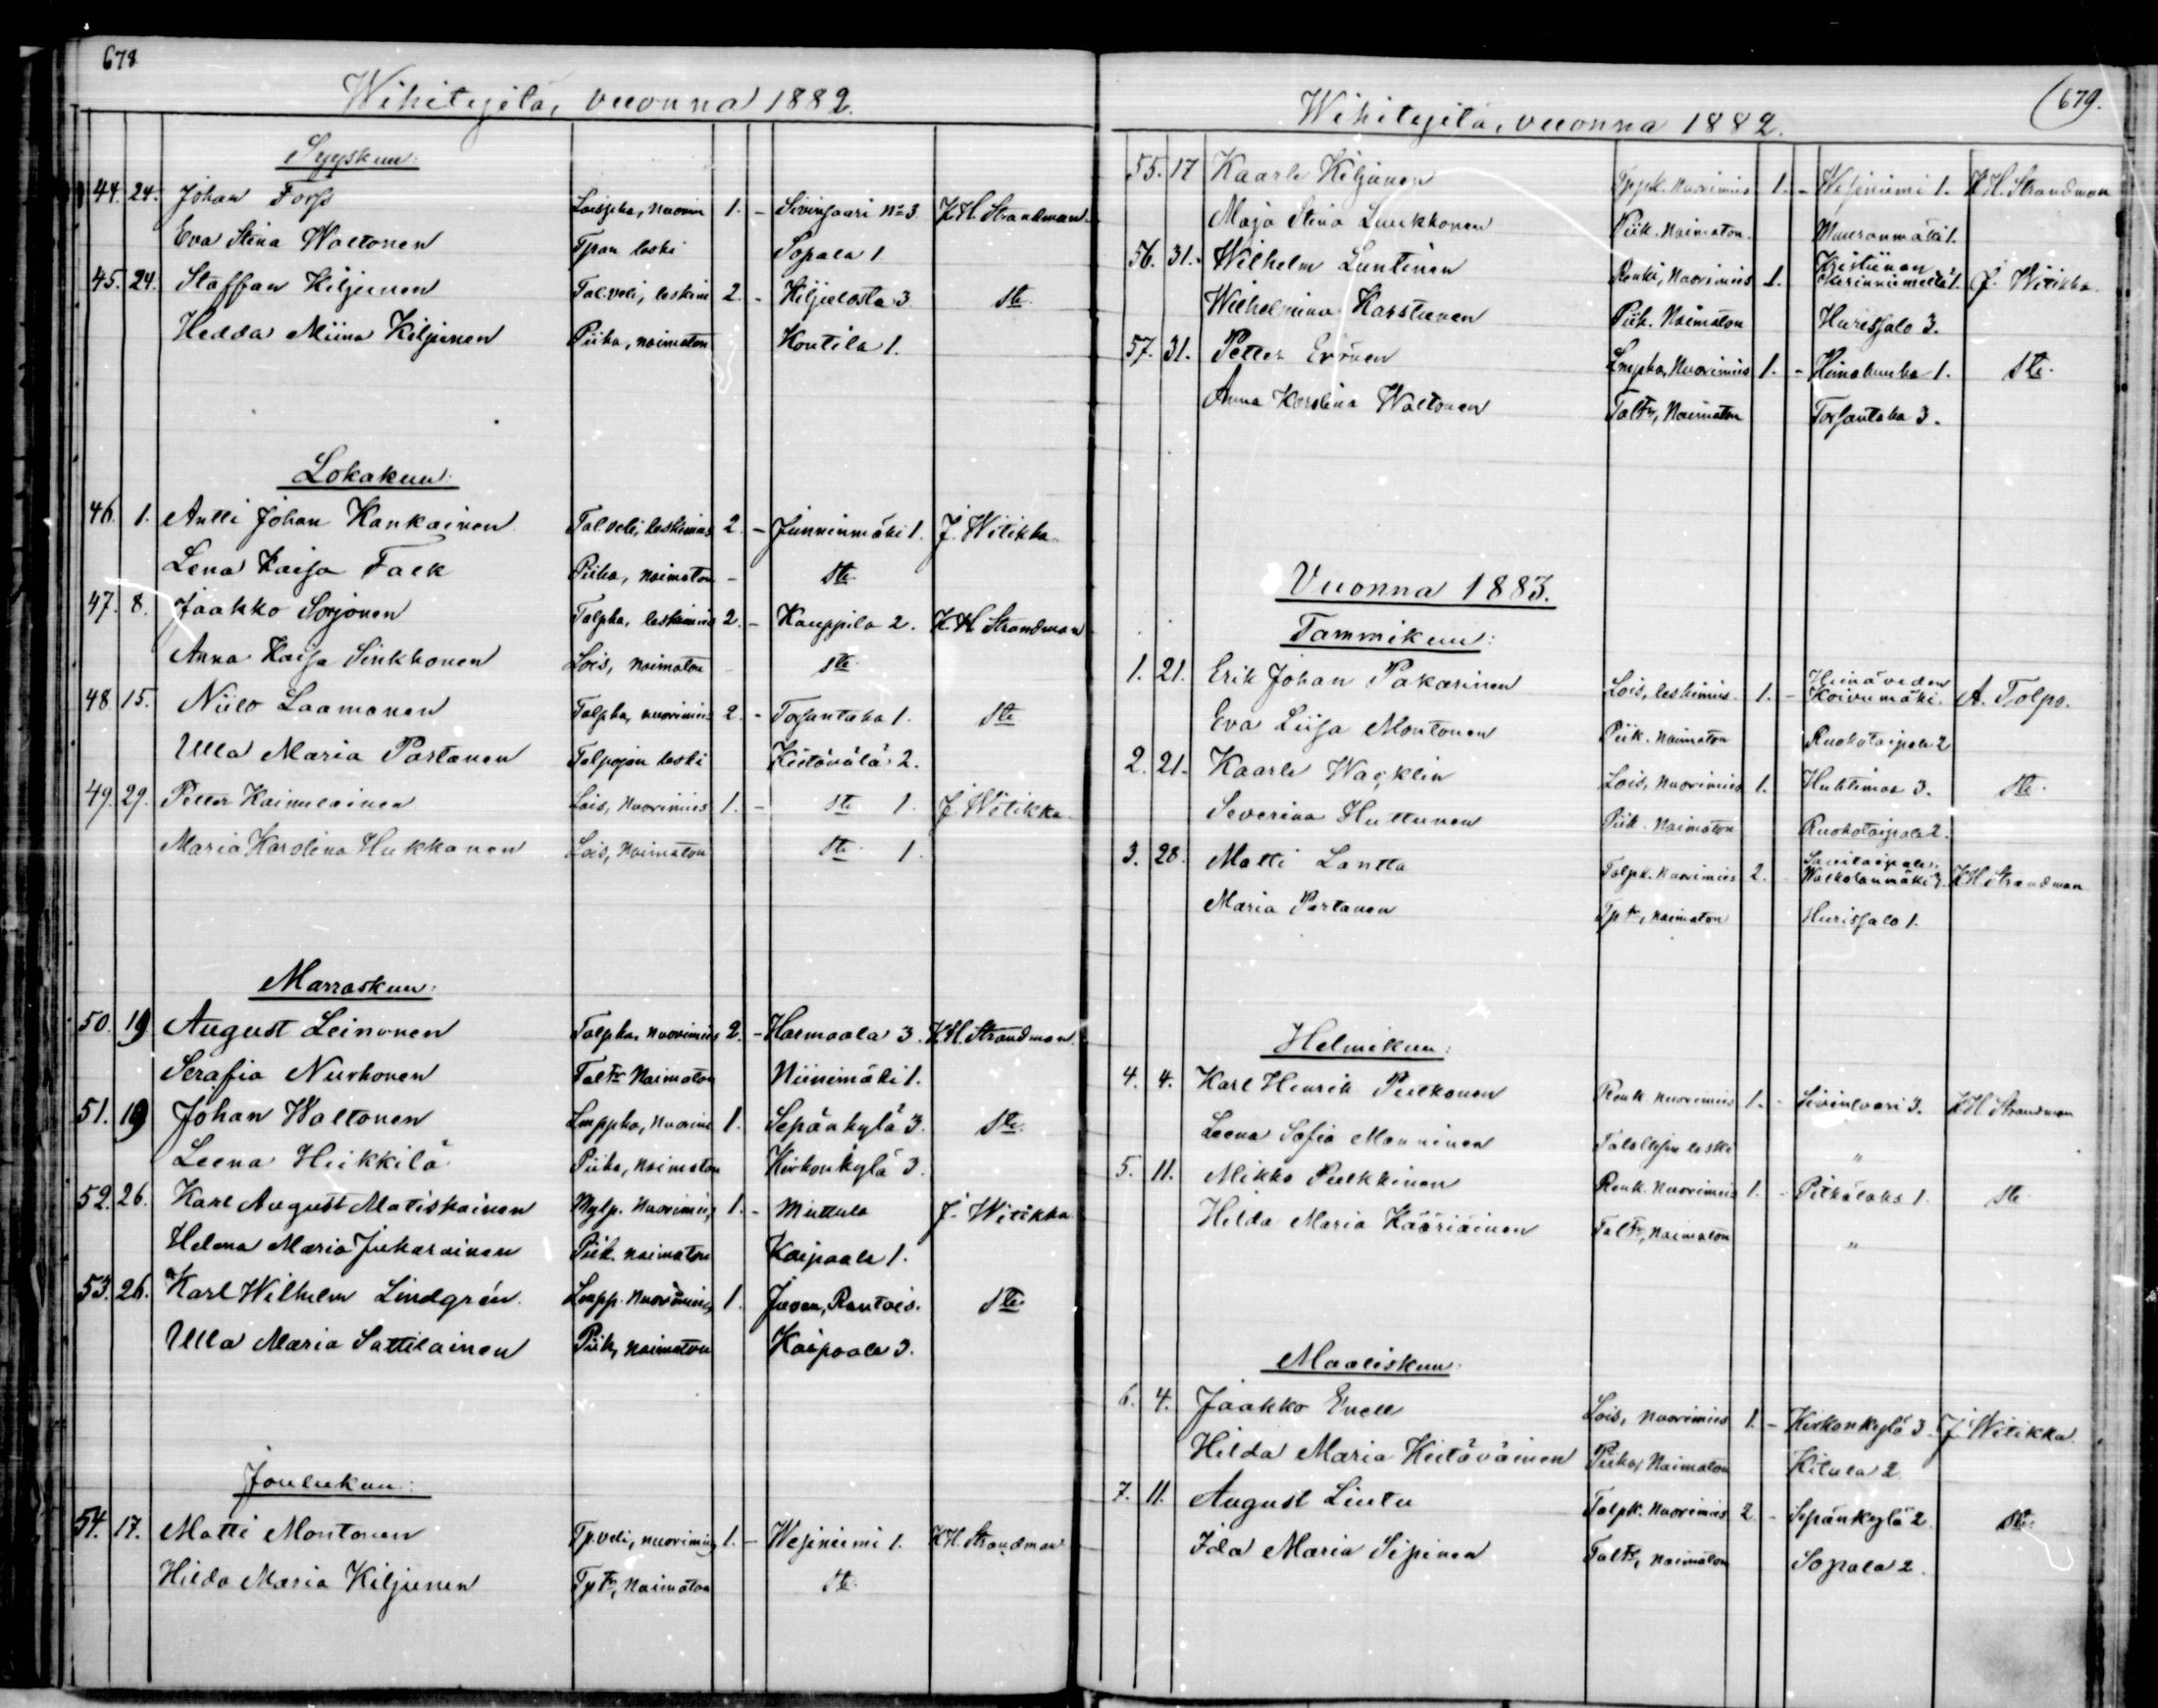 678
Wihityitä, vuonna 1882.
Syyskuu:
44. 24. Johan Forss Loispka, nuorim 1. - Sivinsaari No 3 K.H. Strandman
Eva Stina Waltonen Tpan leski Sopala 1
45. 24. Staffan Kiljunen Tal.veli, leskim 2. - Kiljulosta 3 Ste
Hedda Miina Kiljunen Piika, naimaton Koutila 1.
Lokakuu:
46. 1. Antti Johan Kankainen Tal.veli, leskimies 2. - Junninmäki 1. J. Witikka
Lena Kaisa Falk Piika, naimaton - Ste
47. 8. Jaakko Sorjonen Talpka, leskimies 2. - Kauppila 2. K.H. Strandman
Anna Kaisa Sinkkonen Lois, naimaton - Ste
48 15. Niilo Laamanen Talpka, nuorimies 2. - Torsantaka 1. Ste
Ulla Maria Partanen Talpojan leski Kietävälä 2.
49. 29. Petter Kainulainen Lois, Nuorimies 1. - Ste 1 J. Witikka
Maria Karolina Hukkanen Lois, Naimaton Ste 1.
Marraskuu:
50. 19 August Leinonen Talpka, nuorimies 2. - Harmaala 3. K.H. Strandman
Serafia Nurhonen Tal tr Naimaton Niinimäki 1.
51. 19 Johan Waltonen Lmppka, nuorimi 1. Sepänkylä 3. Ste
Leena Heikkilä Piika, naimaton Kirkonkylä 3.
52. 26. Karl August Matiskainen Mylp. Nuorimies 1. - Muttula J. Witikka
Helena Maria Jukarainen Piik. naimaton Kaipaala 1.
53. 26. Karl Wilhelm Lindgrén Lmpp. Nuorimies 1. Juvan, Rantois. Ste
Ulla Maria Sattilainen Piik, naimaton Kaipaala 3.
Joulukuu:
54. 17. Matti Montonen Tp.veli, nuorimies 1. - Wesiniemi 1. K.H. Strandman
Hilda Maria Kiljunen Tp tr, Naimaton Ste
679.
Wihityitä, vuonna 1882.
55. 17 Kaarle Kiljunen Tppk. Nuorimies 1. - Wesiniemi 1. K.H. Strandman
Maja Stina Luukkonen Piik. Naimaton. Muuranmäki 1.
56. 31. Wilhelm Luntinen Renki, Nuorimies 1. Kristiinan J. Witikka
Wilhelmina Karstunen Piik. Naimaton Hurissalo 3.
57. 31. Petter Eronen Lmpka, Nuorimies 1. - Himahuuha 1. Ste
Anna Karolina Waltonen Tal tr, Naimaton Torsantaka 3.
Vuonna 1883.
Tammikuu:
1. 21. Erik Johan Pakarinen Lois, leskimies. 1. - Heinäveden Koivumäki. A. Tolpo.
Eva Liisa Montonen Piik. naimaton Ruokotaipale 2
2. 21. Kaarle Wacklin Lois, Nuorimies 1. Huhtimaa 3. Ste
Severina Huttunen Piik. Naimaton Ruokotaipale 2.
3. 28. Matti Lantta Talpk. Nuorimies 2. Savitaipale, Walkolanmäki 3. K.H. Strandman
Maria Partanen Tp tr, naimaton Hurissalo 1.
Helmikuu:
4. 4. Karl Henrik Pulkonen Renk nuorimies 1. - Sivinsaari 3. K.H. Strandman
Leena Sofia Manninen leski "
5. 11. Mikko Pulkkinen Renk. Nuorimies 1. - Pitkälaks 1. Ste
Hilda Maria Kääriäinen Tal tr, naimaton "
Maaliskuu:
6. 4. Jaakko Enell Lois, nuorimies 1. - Kirkonkylä 3 J. Witikka
Hilda Maria Kietäväinen Piika, Naimaton Kilula 2
7. 11. August Lintu Talpk. Nuorimies 2 - Sepänkylä 2. Ste
Ida Maria Sipinen Tal tr, naimaton Sopala 2.